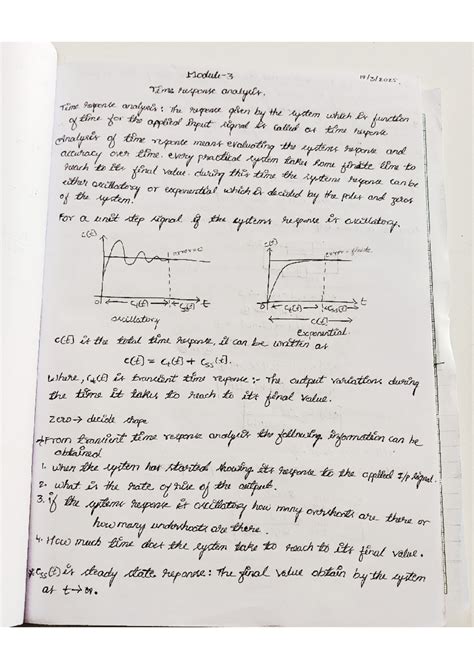 Module-3
19/3/2025.
Time response analysis.
Time response analysis: The response given by the system which is function
of time for the applied input signal is called as time response
Analysis of time response means evaluating the systems response and
accuracy over time. every practical system takes some finite time to
reach to its final value. during this time the systems response can be
either oscillatory or exponential which is decided by the poles and zeros
of the system.
For a unit step signal if the systems response is oscillatory.
c(t) c(t)
error=0 error=finite
0 Ct(t) Css(t) t 0 Ct(t) Css(t) t
c(t)
oscillatory exponential
c(t) is the total time response, it can be written as
c(t) = Ct(t) + Css(t).
where, Ct(t) is transient time response :- The output variations during
the time it takes to reach to its final value.
Zero → decide shape
*From transient time response analysis the following information can be
obtained
1. when the system has started showing its response to the applied i/p signal.
2. what is the rate of rise of the output.
3. if the systems response is oscillatory how many overshoots are there or
how many undershoots are there.
4. How much time does the system take to reach to its final value.
*Css(t) is steady state reponse : The final value obtain by the system
as t→∞.